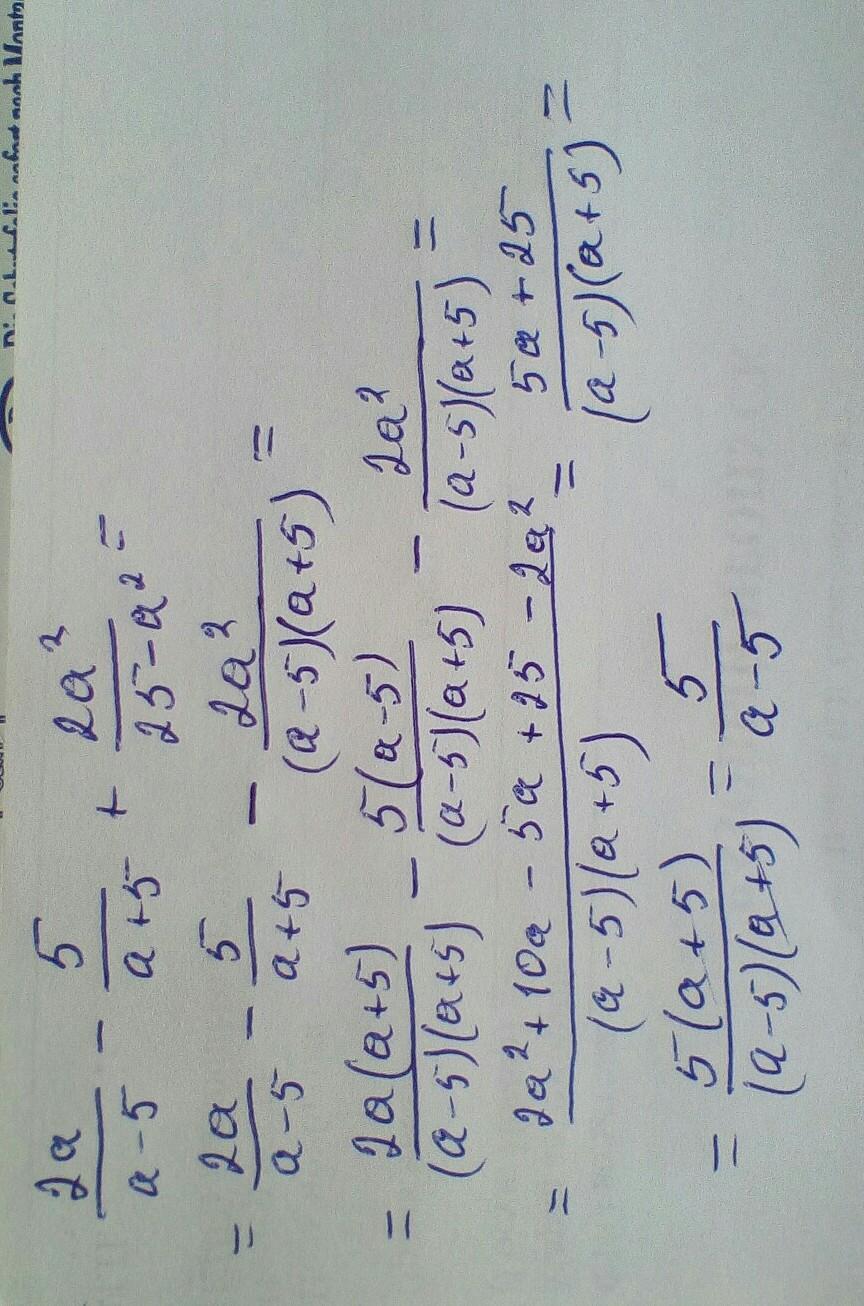 2a/(a-5) - 5/(a+5) + 2a²/(25-a²) =
= 2a/(a-5) - 5/(a+5) - 2a²/((a-5)(a+5)) =
= 2a(a+5)/((a-5)(a+5)) - 5(a-5)/((a-5)(a+5)) - 2a²/((a-5)(a+5)) =
= (2a²+10a-5a+25-2a²)/((a-5)(a+5)) = (5a+25)/((a-5)(a+5)) =
= 5(a+5)/((a-5)(a+5)) = 5/(a-5)